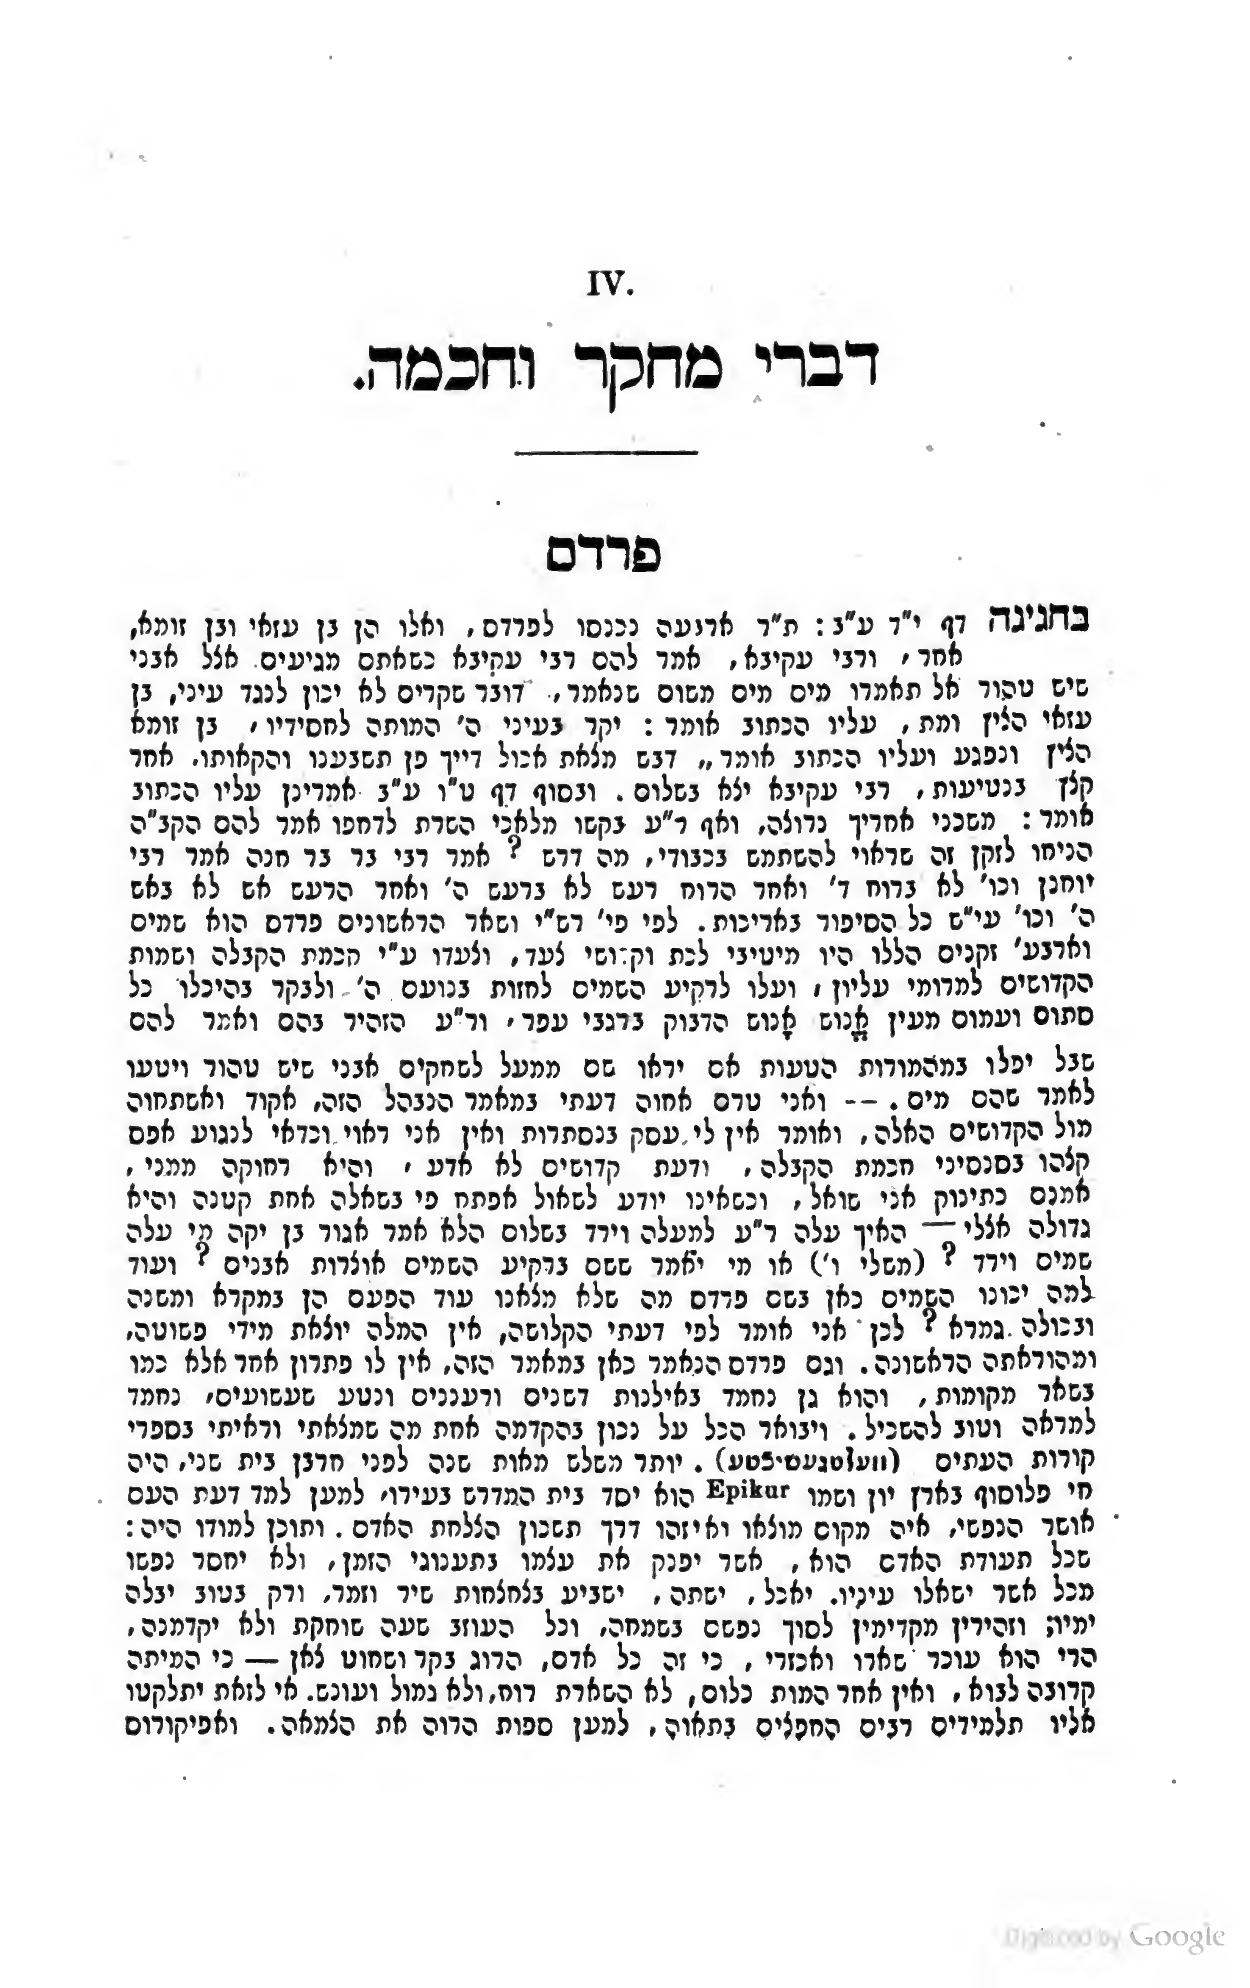 IV.
דברי מחקר וחכמה.
פרדס
בחגיגה דף י"ד ע"ב : ת"ר ארבעה נכנסו לפרדס, ואלו הן בן עזאי ובן זומא,
אחר, ורבי עקיבא, אמר להם רבי עקיבא כשאתם מגיעים אצל אבני
שיש טהור אל תאמרו מים מים משום שנאמר, דובר שקרים לא יכון לנגד עיני, בן
עזאי הציץ ומת, עליו הכתוב אומר : יקר בעיני ה' המותה לחסידיו, בן זומא
הציץ ונפגע ועליו הכתוב אומר „ דבש מצאת אכול דייך פן תשבענו והקאותו. אחר
קצץ בנטיעות, רבי עקיבא יצא בשלום. ובסוף דף ט"ו ע"ב אמרינן עליו הכתוב
אומר : משכני אחריך נרוצה, ואף ר"ע בקשו מלאכי השרת לדחפו אמר להם הקב"ה
הניחו לזקן זה שראוי להשתמש בכבודי, מה דרש ? אמר רבי בר בר חנה אמר רבי
יוחנן וכו' לא ברוח ד' ואחר הרוח רעש לא ברעש ה' ואחר הרעש אש לא באש
ה' וכו' עי"ש כל הסיפור באריכות. לפי פי' רש"י ושאר הראשונים פרדס הוא שמים
וארבע' זקנים הללו היו מיטיבי לכת וקרושי צעד, וצעדו ע"י חכמת הקבלה ושמות
הקדושים למרומי עליון, ועלו לרקיע השמים לחזות בנועם ה' ולבקר בהיכלו כל
סתום ועמוס מעין אֱנוש אָנוש הדבוק ברגבי עפר, ור"ע הזהיר בהם ואמר להם
שבל יפלו במהמורות הטעות אם יראו שם ממעל לשחקים אבני שיש טהור ויטעו
לאמר שהם מים. -- ואני טרם אחוה דעתי במאמר הנבהל הזה, אקוד ואשתחוה
מול הקדושים האלה, ואומר אין לי עסק בנסתרות ואין אני ראוי וכדאי לנגוע אפס
קצהו בסנסיני חכמת הקבלה, ודעת קדושים לא אדע, והיא רחוקה ממני,
אמנם כתינוק אני שואל, וכשאינו יודע לשאול אפתח פי בשאלה אחת קטנה והיא
גדולה אצלי — האיך עלה ר"ע למעלה וירד בשלום הלא אמר אגור בן יקה מי עלה
שמים וירד ? (משלי ו') או מי יאמר ששם ברקיע השמים אוצרות אבנים ? ועוד
למה יכונו השמים כאן בשם פרדס מה שלא מצאנו עוד הפעם הן במקרא ומשנה
ובכולה גמרא ? לכן אני אומר לפי דעתי הקלושה, אין המלה יוצאת מידי פשוטה,
ומהוראתה הראשונה. וגם פרדס הנאמר כאן במאמר הזה, אין לו פתרון אחר אלא כמו
בשאר מקומות, והוא גן נחמד באילנות דשנים ורעננים ונטע שעשועים, נחמד
למראה וטוב להשכיל. ויבואר הכל על נכון בהקדמה אחת מה שמצאתי וראיתי בספרי
קורות העתים . יותר משלש מאות שנה לפני חרבן בית שני, היה
חי פלוסוף בארץ יון ושמו Epikur הוא יסד בית המדרש בעירו, למען למד דעת העם
אושר הנפשי, איה מקום מוצאו ואיזהו דרך תשכון הצלחת האדם. ותוכן למודו היה :
שכל תעודת האדם הוא, אשר יפנק את עצמו בתענוגי הזמן, ולא יחסר נפשו
מכל אשר ישאלו עיניו. יאכל, ישתה, ישביע בצחצחות שיר וזמר, ורק בטוב יבלה
ימיו; וזהירין מקדימין לסוך נפשם בשמחה, וכל העוזב שעה שוחקת ולא יקדמנה,
הרי הוא עוכר שארו ואכזרי, כי זה כל אדם, הרוג בקר ושחוט צאן — כי המיתה
קרובה לבוא, ואין אחר המות כלום, לא השארת רוח, ולא גמול ועונש. אי לזאת יתלקטו
אליו תלמידים רבים החפצים בתאוה, למען ספות הרוה את הצמאה. ואפיקורוס
Digitized by Google